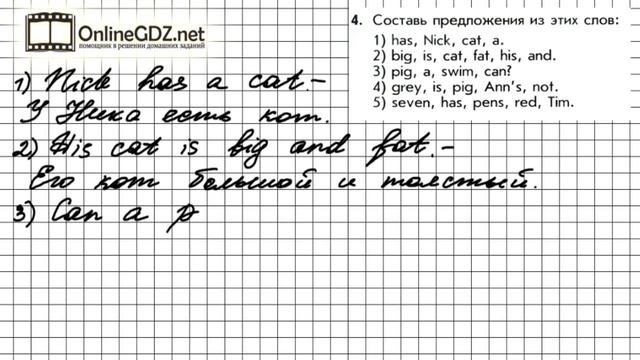 OnlineGDZ.net
помощник в решении домашних заданий
4. Составь предложения из этих слов:
1) has, Nick, cat, a.
2) big, is, cat, fat, his, and.
3) pig, a, swim, can?
4) grey, is, pig, Ann's, not.
5) seven, has, pens, red, Tim.
1) Nick has a cat –
У Ника есть кот.
2) His cat is big and fat. –
Его кот большой и толстый.
3) Can a p